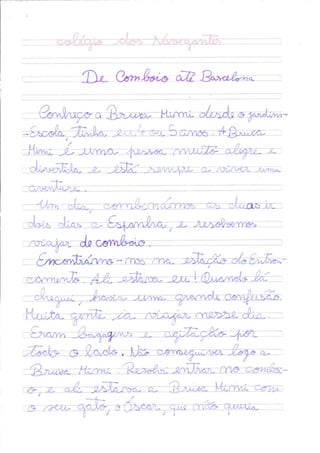 colégio dos Navegantes
De Comboio até Barcelona
Conheço a Bruxa Mimi desde o jardim-
-Escola, tinha eu 4 ou 5 anos. A Bruxa
Mimi é uma pessoa muito alegre e
divertida e está sempre a viver uma
aventura.
Um dia, combinámos as duas ir
dois dias a Espanha, e resolvemos
viajar de comboio.
Encontrámo-nos na estação do Entron-
camento. Ali estava eu! Quando lá
cheguei, havia uma grande confusão.
Muita gente ia viajar nesse dia.
Eram bagagens e agitação por
todo o lado. Não consegui ver logo a
Bruxa Mimi. Resolvi entrar no comboi-
o, e ali estava a Bruxa Mimi com
o seu gato, o Óscar, que não queria